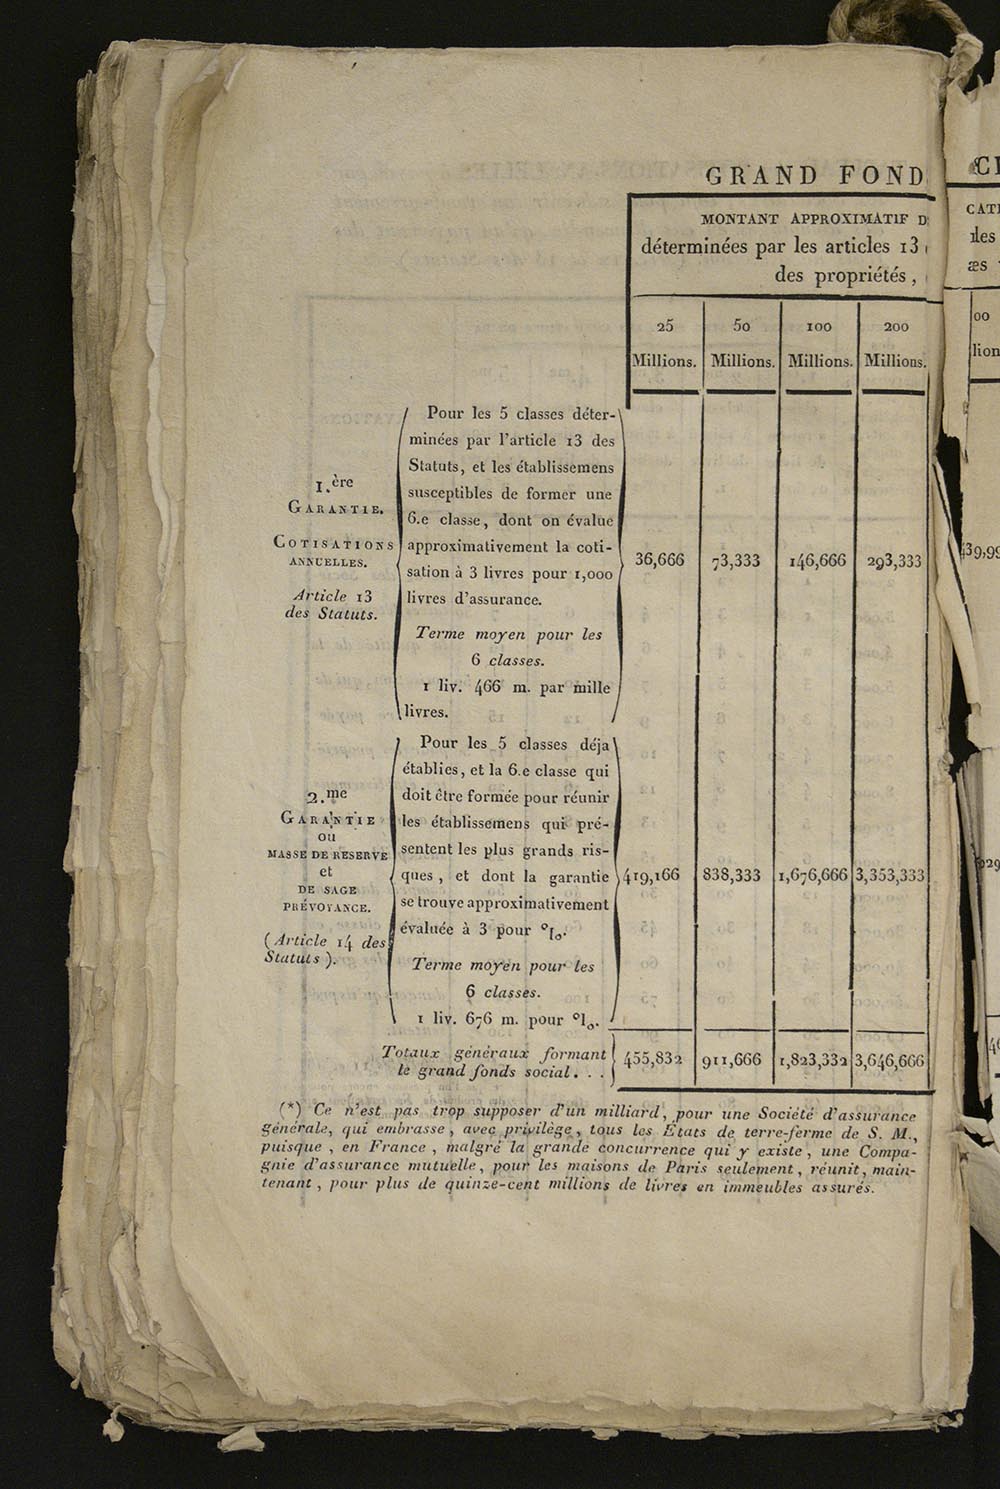 GRAND FOND
MONTANT APPROXIMATIF D
déterminées par les articles 13
des propriétés,
25 50 100 200
Millions. Millions. Millions. Millions.
Pour les 5 classes déter-
minées par l'article 13 des
Statuts, et les établissemens
susceptibles de former une
6.e classe, dont on évalue
approximativement la coti-
sation à 3 livres pour 1,000
livres d'assurance.
Terme moyen pour les
6 classes.
1 liv. 466 m. par mille
livres.
1.ère
GARANTIE.
COTISATIONS
ANNUELLES.
Article 13
des Statuts.
36,666 73,333 146,666 293,333
Pour les 5 classes déja
établies, et la 6.e classe qui
doit être formée pour réunir
les établissemens qui pré-
sentent les plus grands ris-
ques, et dont la garantie
se trouve approximativement
évaluée à 3 pour %.
Terme moyen pour les
6 classes.
1 liv. 676 m. pour %.
2.me
GARANTIE
ou
MASSE DE RESERVE
et
DE SAGE
PRÉVOYANCE.
(Article 14 des
Statuts).
419,166 838,333 1,676,666 3,353,333
Totaux généraux formant
le grand fonds social. . .
455,832 911,666 1,823,332 3,646,666
(*) Ce n'est pas trop supposer d'un milliard, pour une Société d'assurance
générale, qui embrasse, avec privilège, tous les États de terre-ferme de S. M.,
puisque, en France, malgré la grande concurrence qui y existe, une Compa-
gnie d'assurance mutuelle, pour les maisons de Paris seulement, réunit, main-
tenant, pour plus de quinze-cent millions de livres en immeubles assurés.
CATI